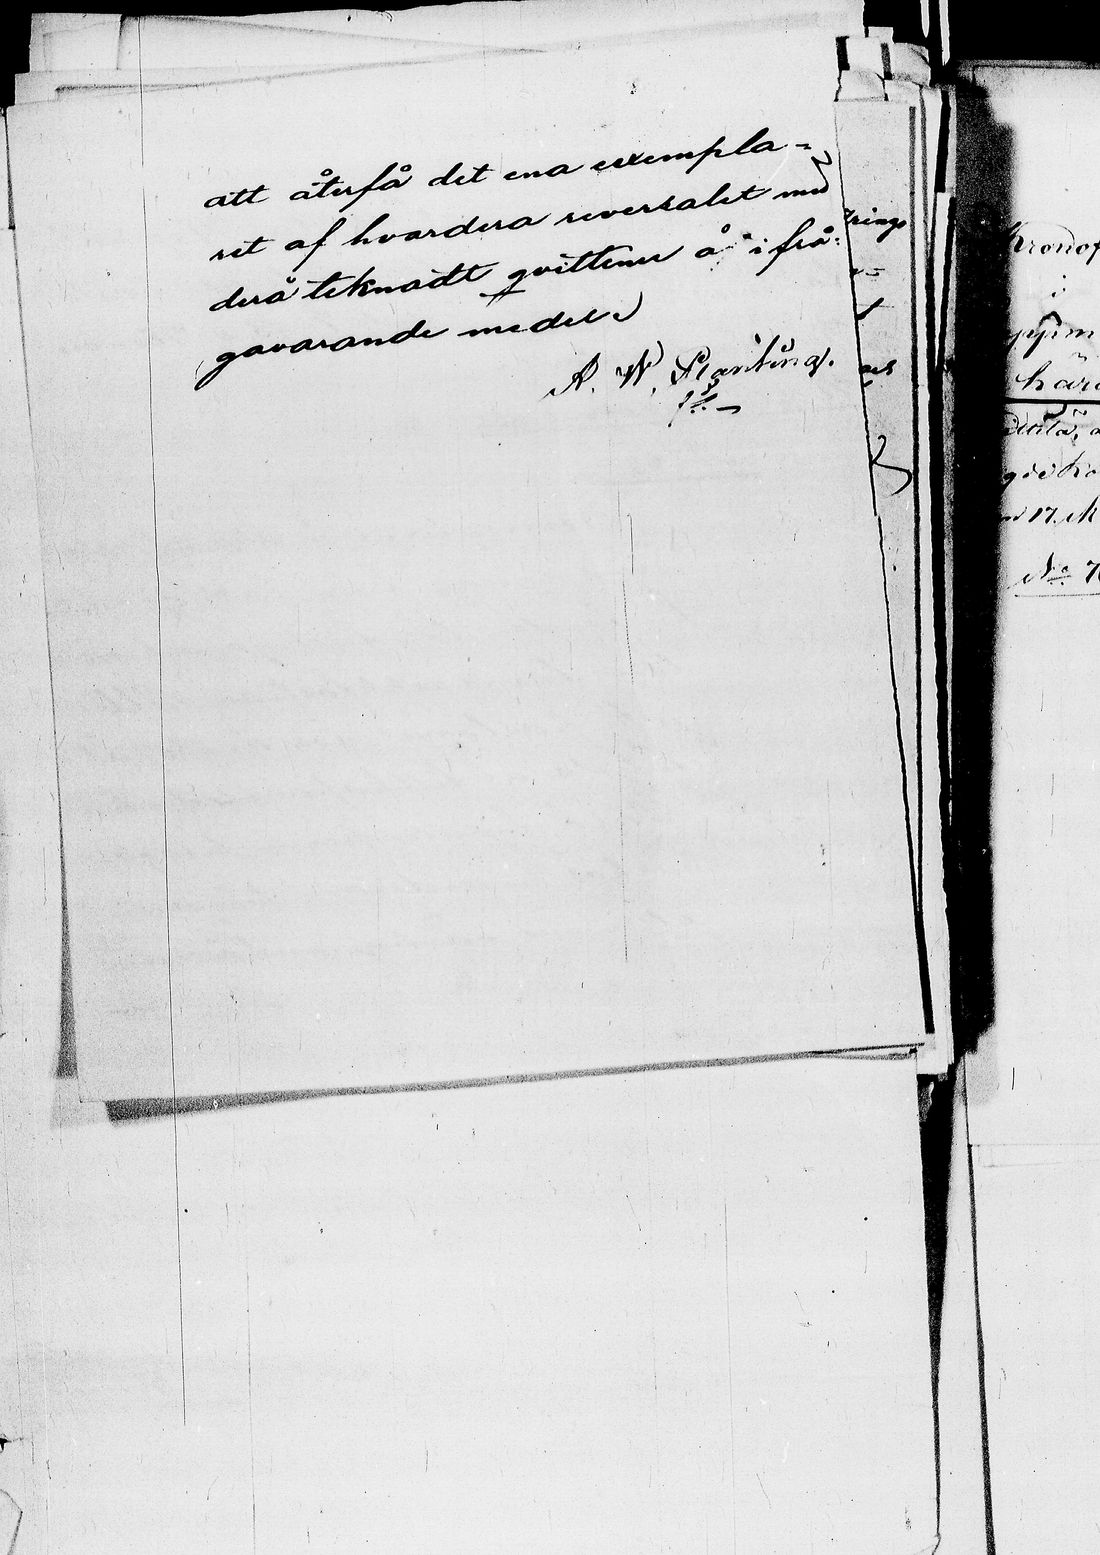 att återfå det ena exempla=
ret af hvardera reversalet med
derå teknadt qvittener å i frå=
gavarande medel.
A. W. Planting.
rings
Kronof
i
härs
17. M
No 7